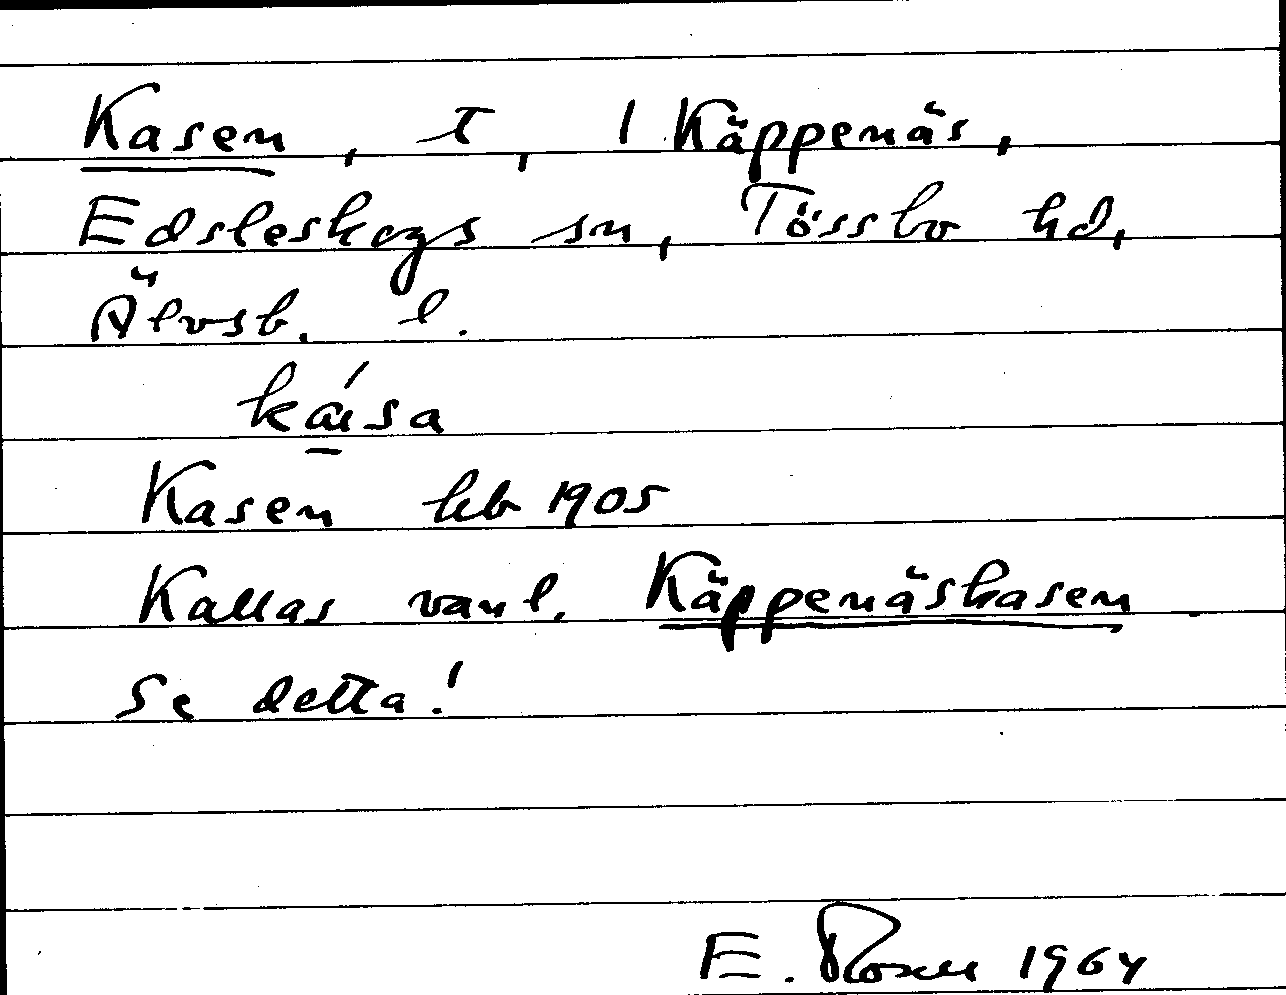 Kasen, t, 1 Käppenäs,
Edsleskogs sn, Tössbo hd,
Älvsb. l.
ká̱sa
Kasen hb 1905
Kallas vanl. Käppenäskasen
Se detta!
E. Rosell 1964